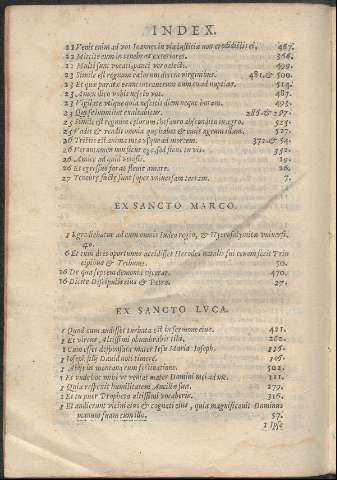 INDEX.
21 Venit enim ad vos Ioannes in via iustitiæ non credidistis ei, 467.
22 Mittite eum in tenebras exteriores. 366.
22 Multi sunt vocati, pauci vero electi. 499.
25 Simile est regnum cælorum decem virginibus. 481. & 500.
25 Et quæ paratæ erant intrauerunt cum eo ad nuptias. 514.
25 Amen dico vobis nescio vos. 487.
25 Vigilate itaque quia nescitis diem neque horam. 493.
23 Qui se humiliat exaltabitur. 286. & 287.
Simile est regnum cælorum thesauro abscondito in agro. 525.
Vadit & vendit omnia quæ habet & emit agrum illum. 527.
26 Tristis est anima mea vsque ad mortem. 372. & 54.
26 Verumtamen non sicut ego sed sicut tu vis. 352.
26 Amice ad quid venisti. 19.
26 Et egressus foras fleuit amare. 26.
27 Tenebræ factæ sunt super vniuersam terram. 7.
EX SANCTO MARCO.
1 Egrediebatur ad eum omnis Iudææ regio, & Hyerosolymitæ vniuersi.
40.
6 Et cum dies oportunus accidisset Herodes natalis sui cænam fecit Prin
cipibus & Tribunis. 50.
16 De qua septem demonia eiecerat. 470.
16 Dicite Discipulis eius & Petro. 27.
EX SANCTO LVCA.
1 Quæ cum audisset turbata est in sermone eius. 421.
1 Et virtus Altissimi obumbrabit tibi. 260.
1 Cum esset desponsata mater Iesu Maria Ioseph.
1 Ioseph fili Dauid noli timere.
1 Abijt in montana cum festinatione. 502.
1 Et vnde hoc mihi vt veniat mater Domini mei ad me. 111.
1 Quia respexit humilitatem Ancillæ suæ. 279.
1 Et tu puer Propheta altissimi vocaberis. 316.
1 Et audierunt vicini eius & cognati eius, quia magnificauit Dominus
misericordiam suam cum illo. 57.
1 Ipse